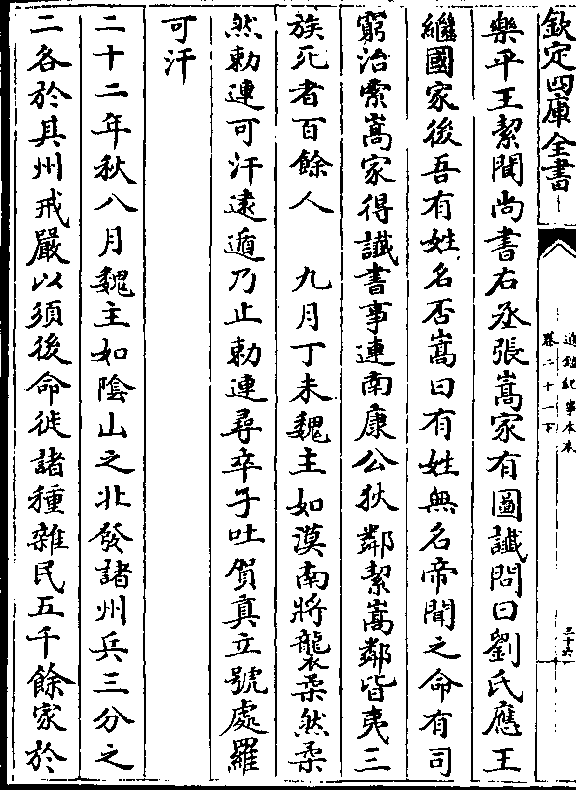 欽定四庫全書
通鑑紀事本末
卷二十一下
三十六
樂平王絜聞尚書右丞張嵩家有圖讖問曰劉氏應王
繼國家後吾有姓名否嵩曰有姓無名帝聞之命有司
窮治索嵩家得讖書事連南康公狄鄰絜嵩鄰皆夷三
族死者百餘人　九月丁未魏主如漠南將襲柔然柔
然勅連可汗遠遁乃止勅連尋卒子吐賀真立號處羅
可汗
二十二年秋八月魏主如陰山之北發諸州兵三分之
二各於其州戒嚴以須後命徙諸種雜民五千餘家於